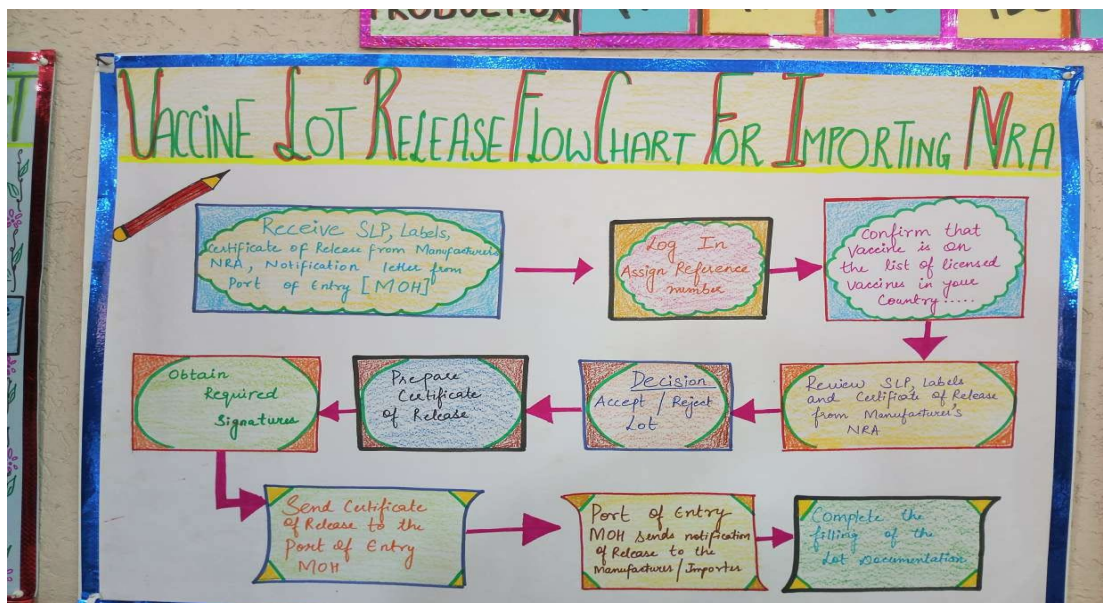 PRODUCTION
VACCINE LOT RELEASE FLOW CHART FOR IMPORTING NRA
Receive SLP, Labels,
Certificate of Release from Manufacturers
NRA, Notification letter from
Port of Entry [MOH]
Log In
Assign Reference
number
Confirm that
vaccine is on
the list of licensed
vaccines in your
Country.....
Review SLP, Labels
and Certificate of Release
from Manufacturer's
NRA
Decision
Accept / Reject
Lot
Prepare
Certificate
of Release
Obtain
Required
Signatures
Send Certificate
of Release to the
Port of Entry
MOH
Port of Entry
MOH sends notification
of Release to the
Manufacturer/Importer
Complete the
filling of the
Lot Documentation